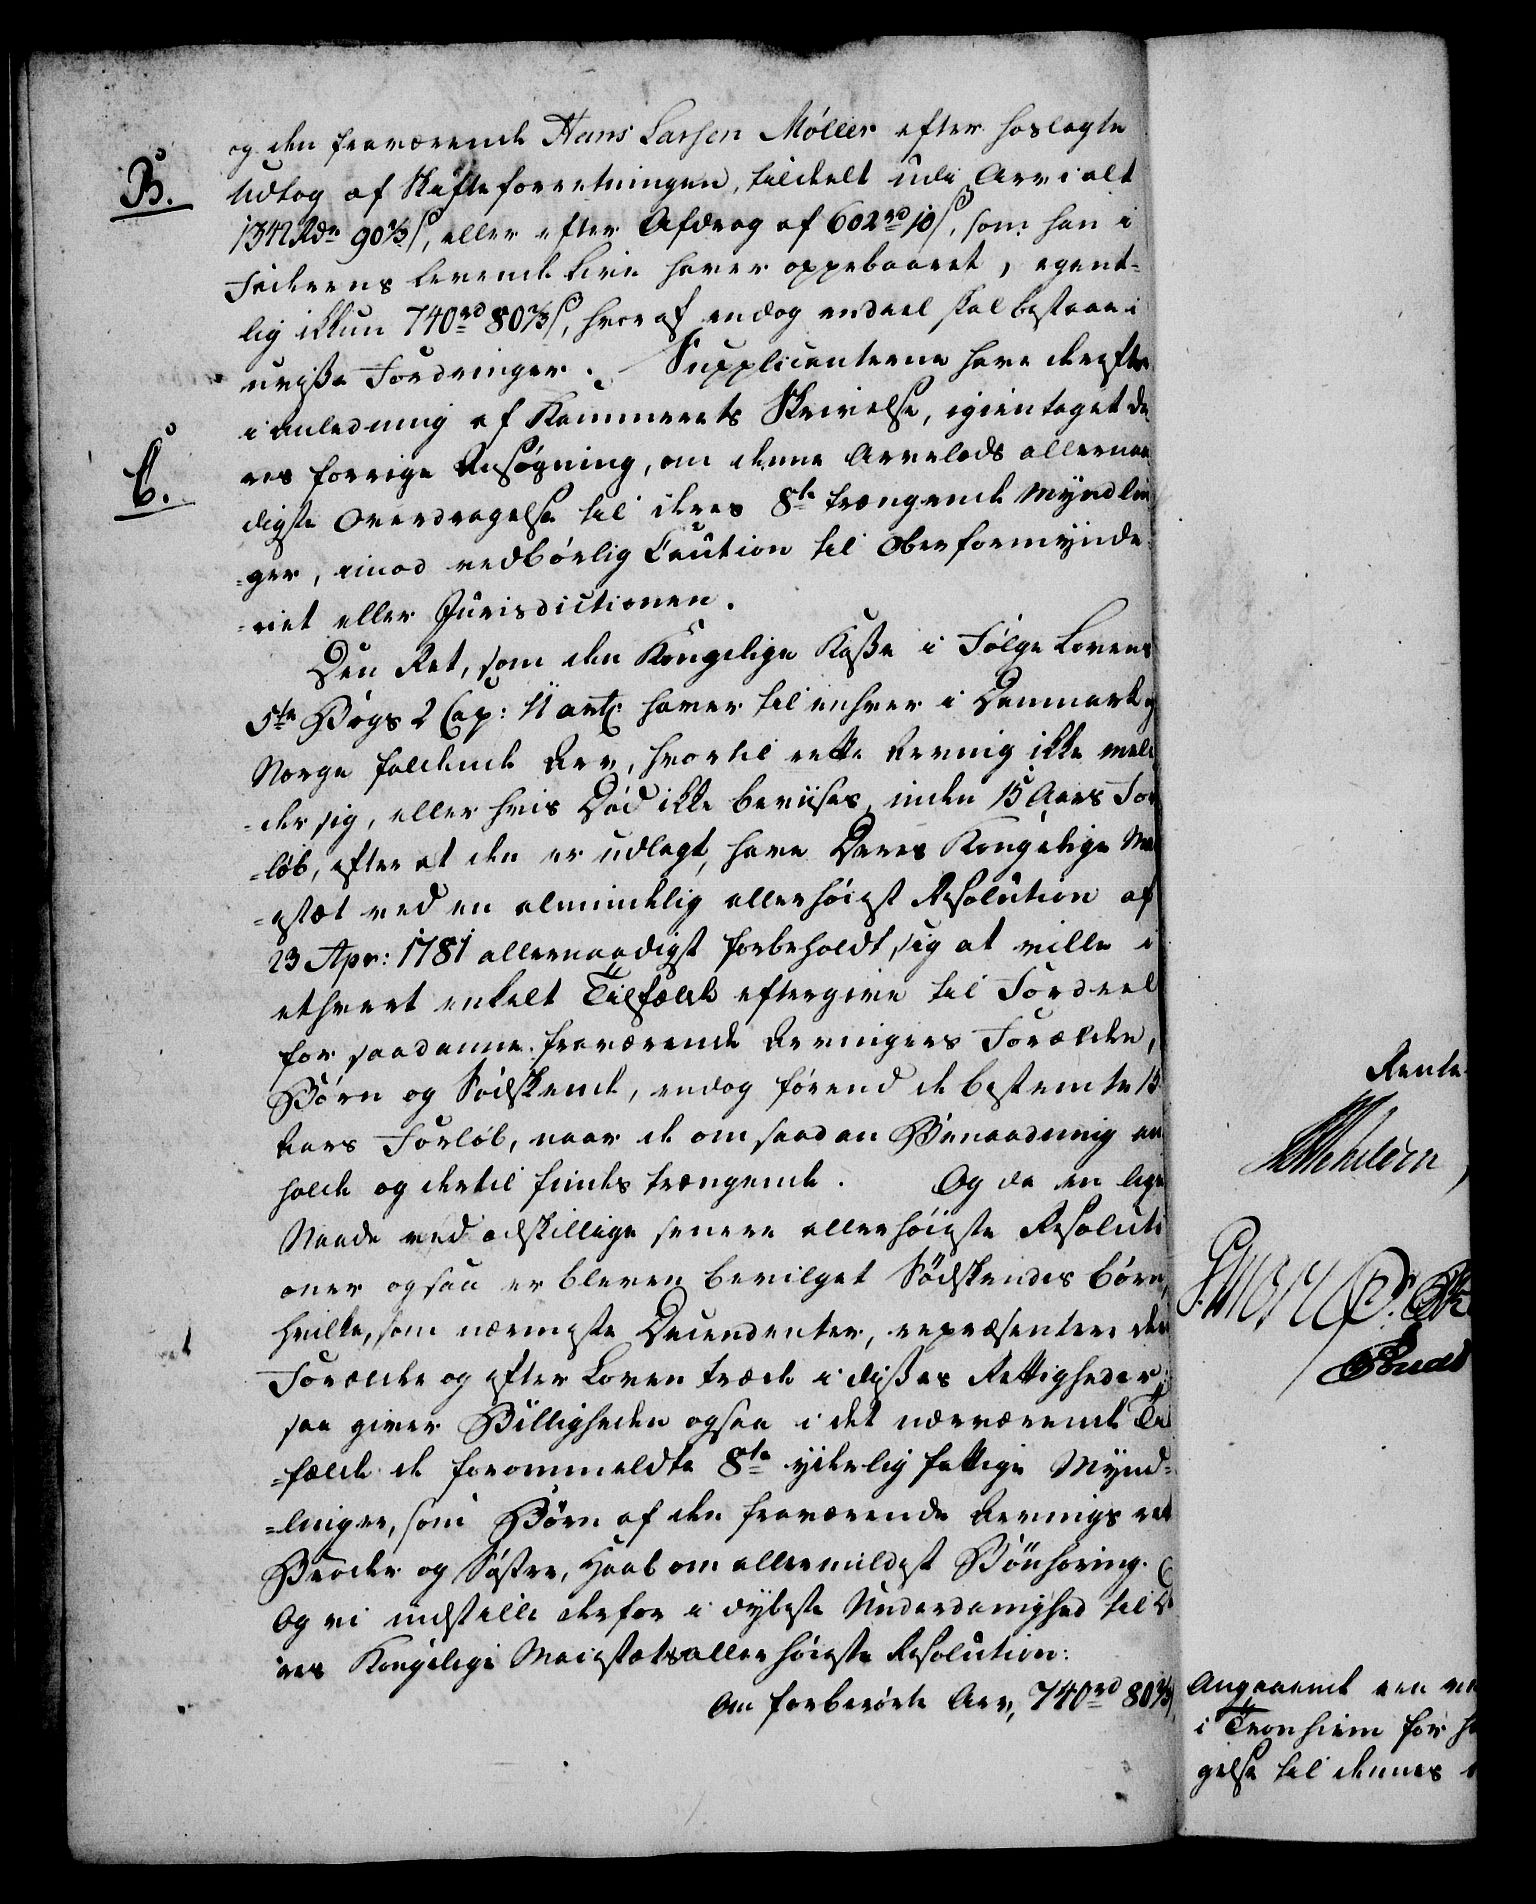 og den fraværende Hans Larsen Möller efter hoslagte
B.
Udtog af Skifteforretningen, tildeelt udi Arv i alt
1342 Rdr 90⅔ s, eller efter Afdrag af 602 rd 10 s, som han i
Faderens levende Live haver oppebaaret, egent-
lig ikkun 740 rd 80⅔ s, hvoraf endog endeel skal bestaae i
uvisse Fordringer. Supplicanterne have derefter
i Anledning af Kammerets Skrivelse, igientaget de
C.
res forrige Ansøgning, om denne Arvelods allernaa
digste Overdragelse til deres 8te trængende Myndlin
-ger, imod vedbörlig Caution til Oberformynde
-riet eller Jurisdictionen.
Den Ret, som den Kongelige Kasse i Fölge Lovens
5te Bogs 2 Cap: 11 art: haver til enhver i Danmark og
Norge faldende Arv, hvortil rette Arving ikke mel
-der sig, eller hvis Död ikke beviises, inden 15 Aars For
-löb, efter at den er udlagt, have Deres Kongelige Ma
-jestæt ved en almindelig allerhöiest Resolution af
23 Apr: 1781 allernaadigst forbeholdt sig at ville i
ethvert enkelt Tilfælde eftergive til Fordeel
for saadanne fraværende Arvingers Forældre,
Börn og Södskende, endog förend de bestemte 15
Aars Forlöb, naar de om saadan Benaadning an
holde og dertil findes trængende. Og da en lige
Naade ved adskillige senere allerhöieste Resoluti
oner ogsaa er bleven bevilget Södskendes börn,
hvilke, som nærmeste Decendenter, repræsentere der
Forældre og efter Loven træde i disses Rettigheder;
saa giver Billigheden ogsaa i det nærværende Til
-fælde de forommeldte 8te yderlig fattige Mynd-
-linger, som Börn af den fraværende Arvings
Broder og Söster, Haab om allermildest Bönhöring.
Og vi indstille derfor i dybeste Underdanighed til De
res Kongelige Maiestæts allerhöieste Resolution:
Om forberörte Arv, 740 rd 80⅔ s,
Rente
Angaaende en
i Tronhiem for
gelse til dennes